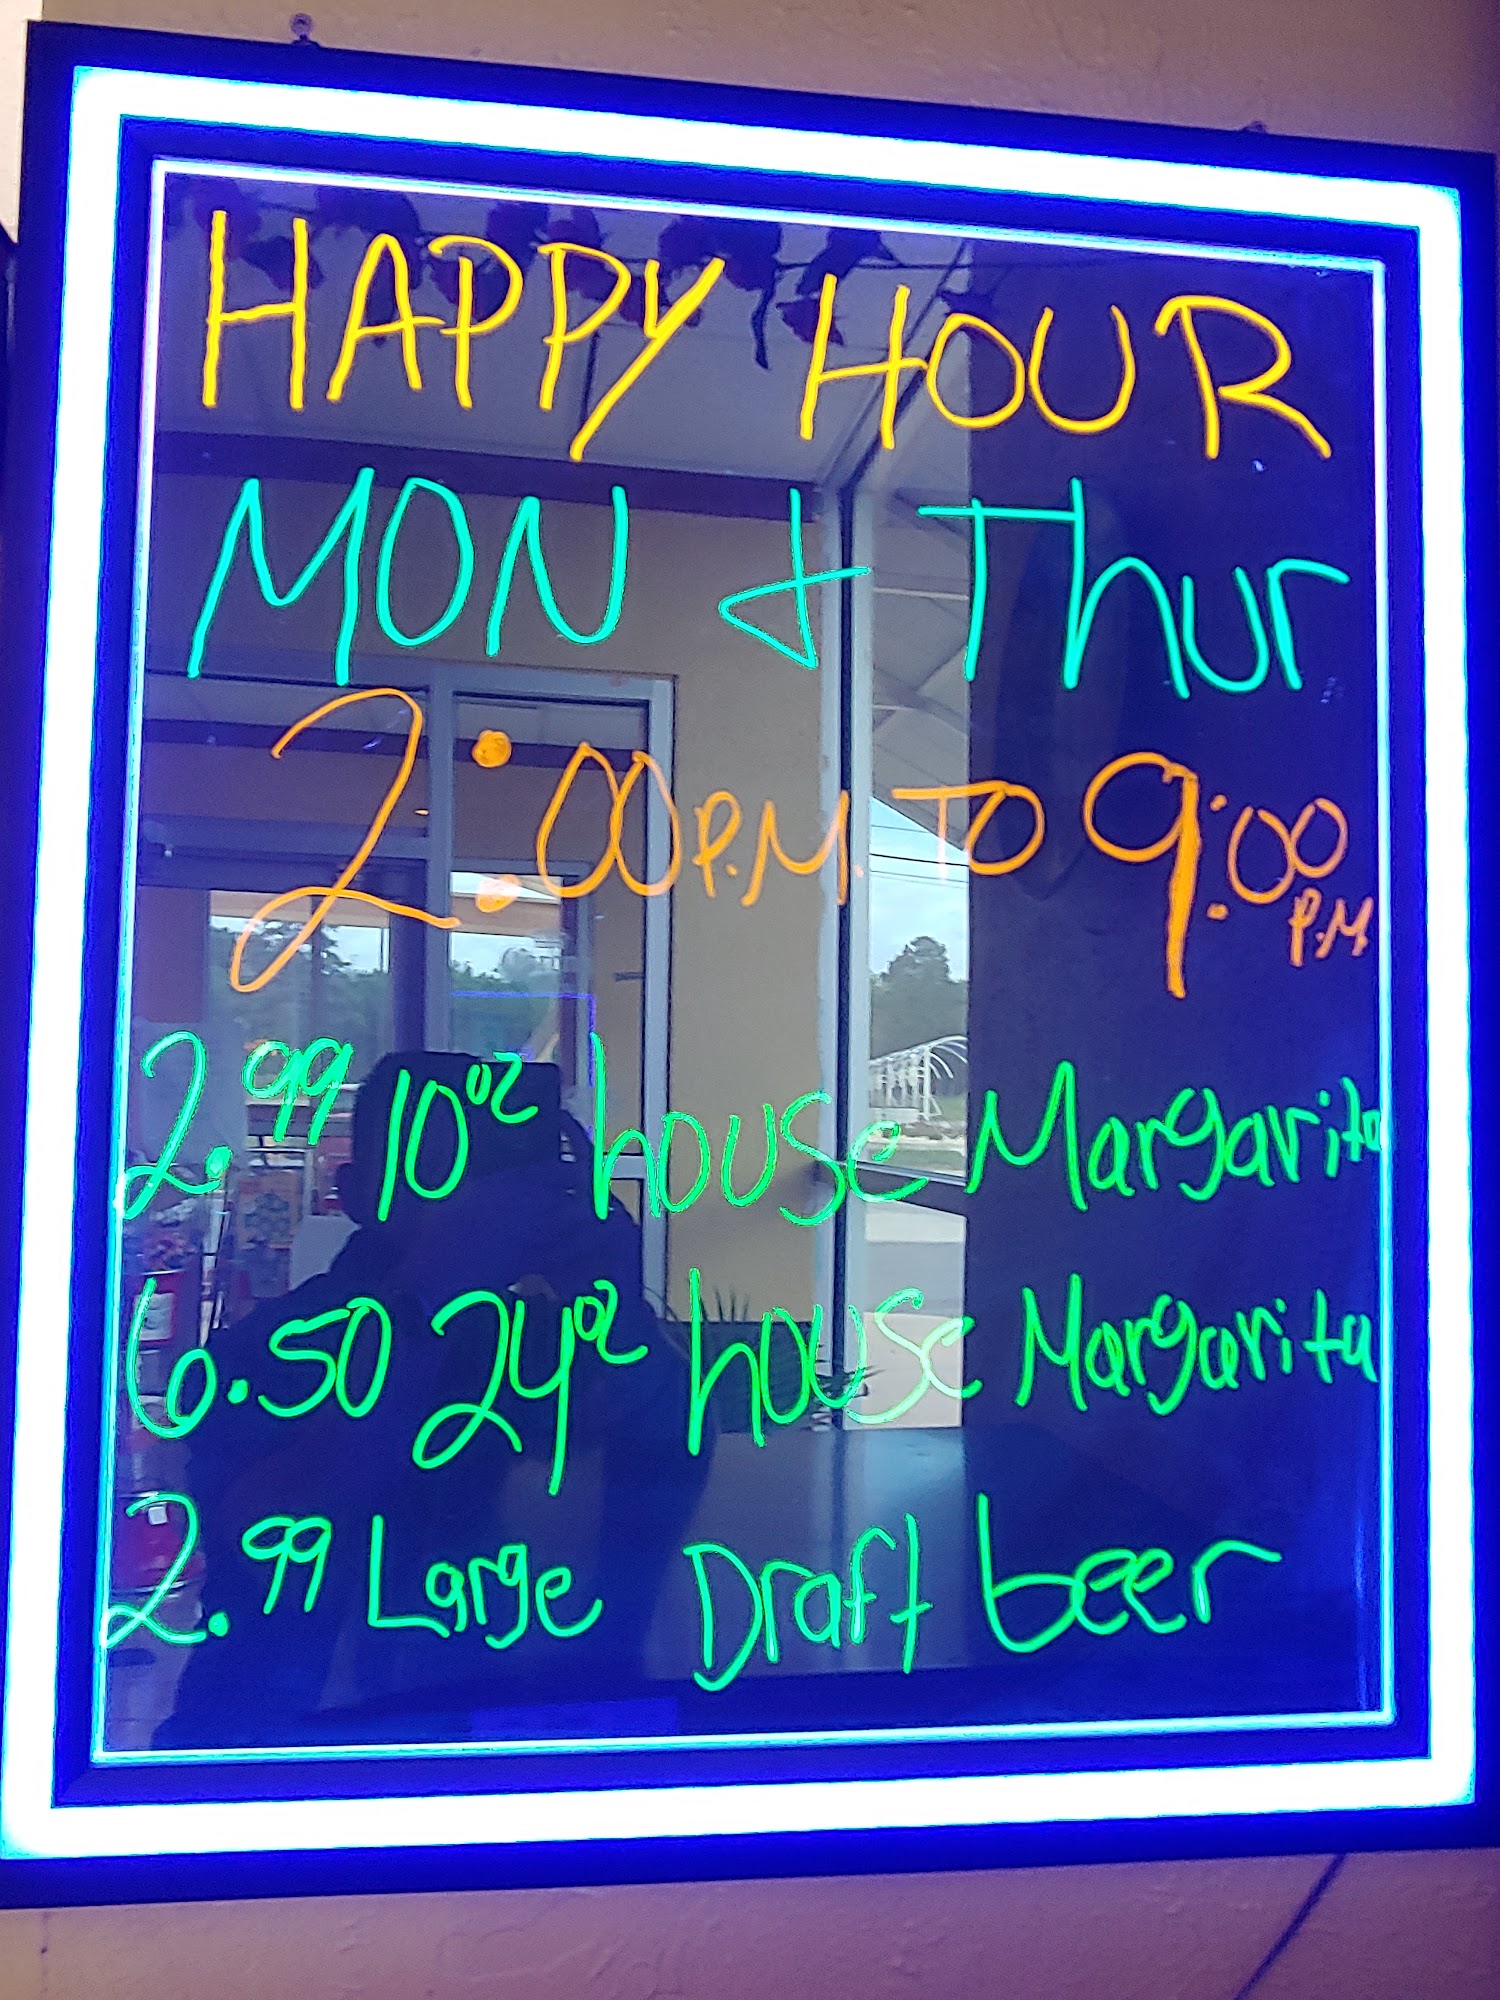 HAPPY HOUR
MON & Thur
2:00 P.M. TO 9:00 P.M.
2.99 10oz house Margarita
6.50 24oz house Margarita
2.99 Large Draft beer